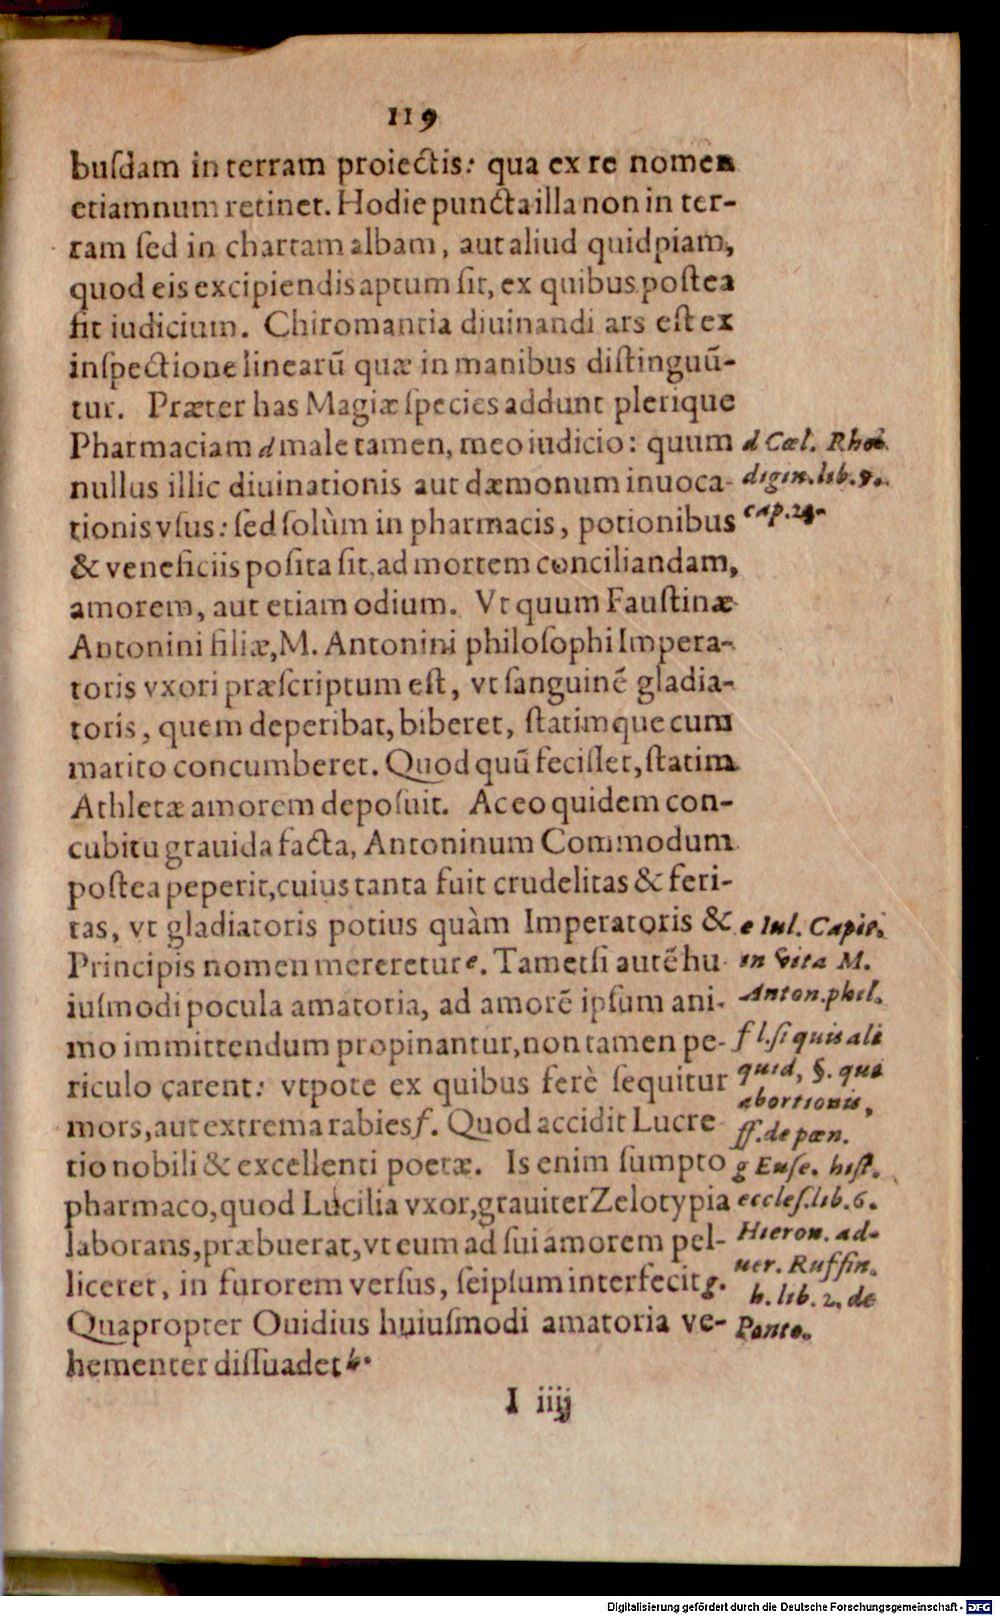 119
buſdam in terram proiectis: qua ex re nomen
etiamnum retinet. Hodie puncta illa non in ter-
ram ſed in chartam albam, aut aliud quidpiam,
quod eis excipiendis aptum ſit, ex quibus poſtea
fit iudicium. Chiromantia diuinandi ars eſt ex
inſpectione linearũ quæ in manibus diſtinguũ-
tur. Præter has Magiæ ſpecies addunt plerique
Pharmaciam d male tamen, meo iudicio: quum
nullus illic diuinationis aut dæmonum inuoca-
tionis vſus: ſed ſolùm in pharmacis, potionibus
& veneficiis poſita ſit, ad mortem conciliandam,
amorem, aut etiam odium. Vt quum Fauſtinæ
Antonini filiæ, M. Antonini philoſophi Impera-
toris vxori præſcriptum eſt, vt ſanguinẽ gladia-
toris, quem deperibat, biberet, ſtatimque cum
marito concumberet. Quod quũ feciſſet, ſtatim
Athletæ amorem depoſuit. Ac eo quidem con-
cubitu grauida facta, Antoninum Commodum
poſtea peperit, cuius tanta fuit crudelitas & feri-
tas, vt gladiatoris potius quàm Imperatoris &
Principis nomen mereretur e. Tametſi autẽ hu
iuſmodi pocula amatoria, ad amorẽ ipſum ani-
mo immittendum propinantur, non tamen pe-
riculo carent: vtpote ex quibus ferè ſequitur
mors, aut extrema rabies f. Quod accidit Lucre
tio nobili & excellenti poetæ. Is enim ſumpto
pharmaco, quod Lucilia vxor, grauiter Zelotypia
laborans, præbuerat, vt eum ad ſui amorem pel-
liceret, in furorem verſus, ſeipſum interfecit g.
Quapropter Ouidius huiuſmodi amatoria ve-
hementer diſſuadet h.
I iiij
d Cœl. Rho
digin. lib. 9.
cap. 24.
e Iul. Capit.
in vita M.
Anton. phil.
f l. ſi quis ali
quid, §. qui
abortionis,
ff. de pœn.
g Euſe. hiſt.
eccleſ. lib. 6.
Hieron. ad-
uer. Ruffin.
h. lib. 2. de
Ponto.
Digitalisierung gefördert durch die Deutsche Forschungsgemeinschaft - DFG